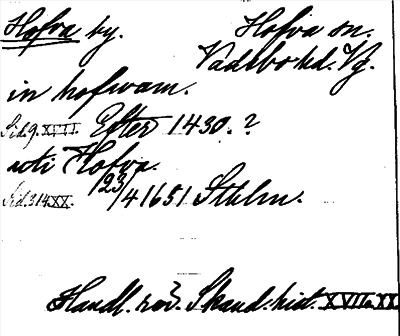 Hofva by. Hofva sn.
Vadsbo hd. Vg.
in hofwam.
Sid. 9. XVII. Efter 1430.?
uti Hofva.
Sid. 314 XX. 23/4 1651 Sthlm.
Handl. rör. Skand. hist. XVII o XX